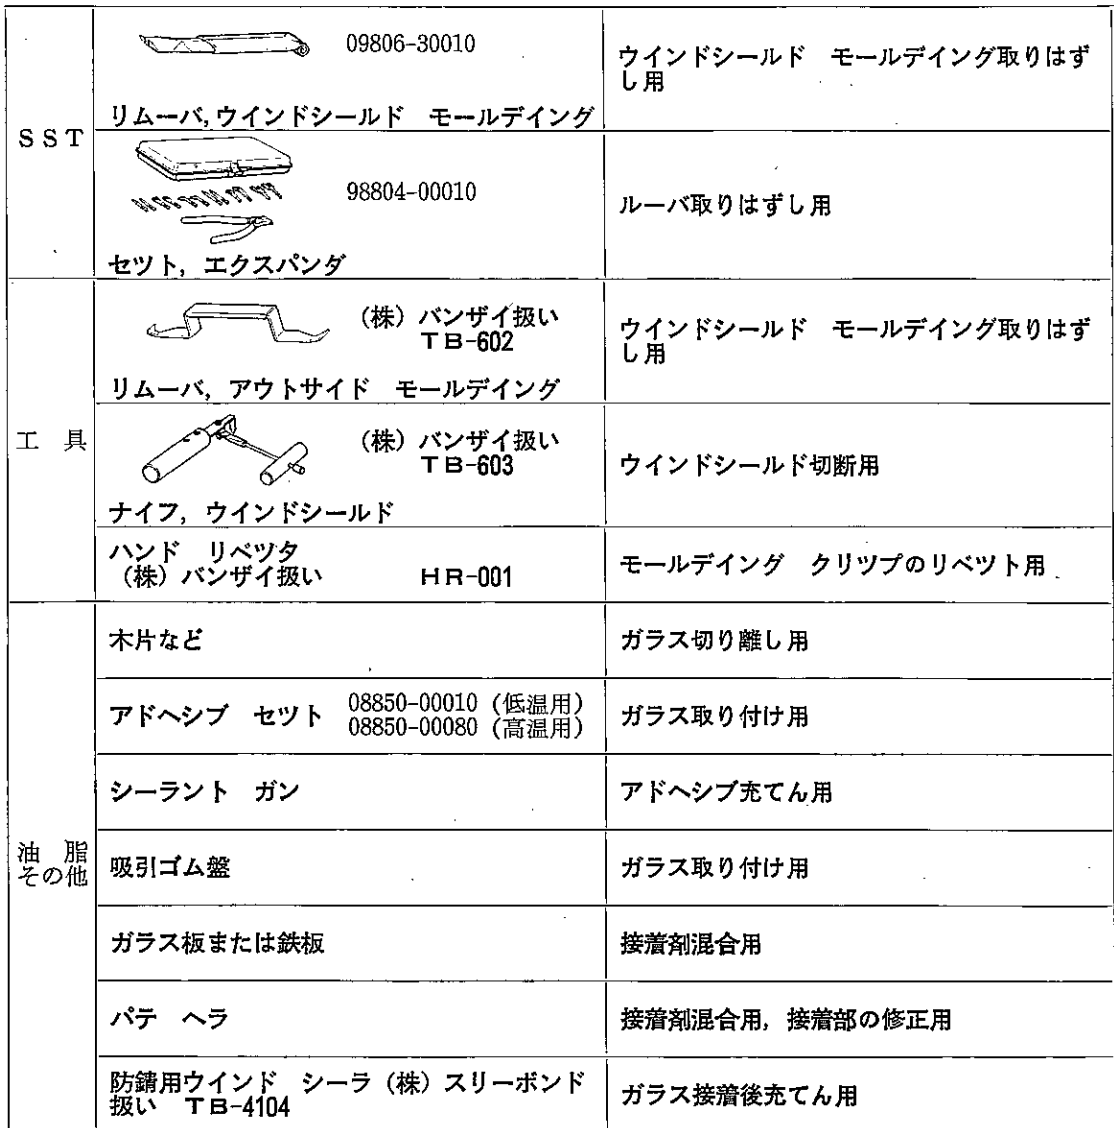 SST
09806-30010
リムーバ,ウインドシールド　モールデイング
ウインドシールド　モールデイング取りはず
し用
98804-00010
セツト，エクスパンダ
ルーバ取りはずし用
工　具
（株）バンザイ扱い
TB-602
リムーバ，アウトサイド　モールデイング
ウインドシールド　モールデイング取りはず
し用
（株）バンザイ扱い
TB-603
ナイフ，ウインドシールド
ウインドシールド切断用
ハンド　リベツタ
（株）バンザイ扱い　HR-001
モールデイング　クリツプのリベツト用
油　脂
その他
木片など
ガラス切り離し用
アドヘシブ　セツト
08850-00010（低温用）
08850-00080（高温用）
ガラス取り付け用
シーラント　ガン
アドヘシブ充てん用
吸引ゴム盤
ガラス取り付け用
ガラス板または鉄板
接着剤混合用
パテ　ヘラ
接着剤混合用，接着部の修正用
防錆用ウインド　シーラ（株）スリーボンド
扱い　TB-4104
ガラス接着後充てん用